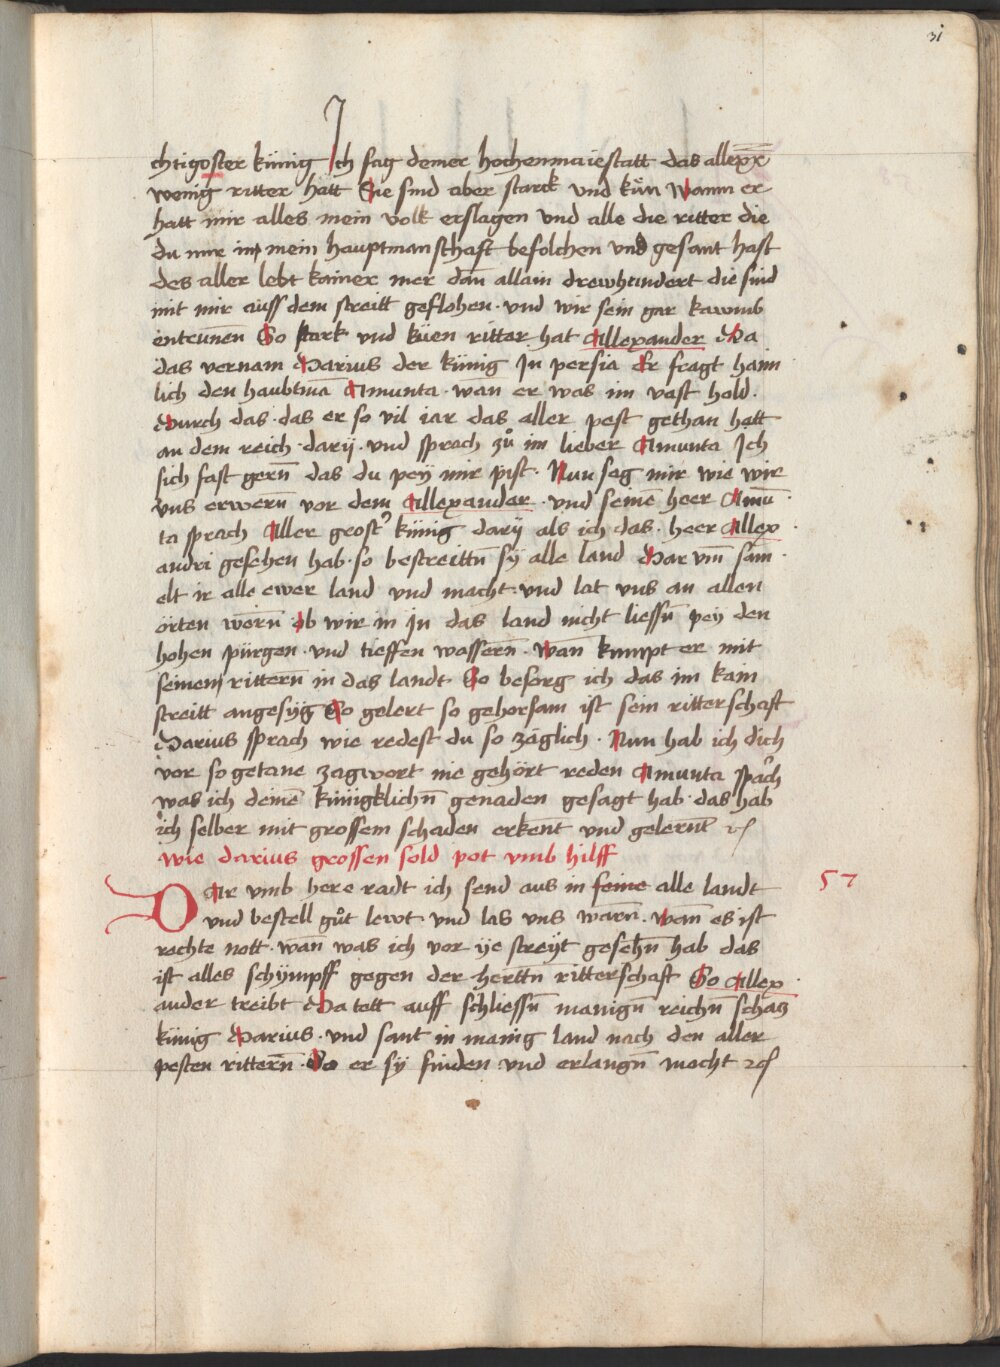 31
chtigoster künig Ich sag deiner hochenmaiestatt das allexr̄
wenig ritter hatt Sie sind aber starck vnd kün wann er
hatt mir alles mein volk erslagen vnd alle die ritter die
du mir in mein hauptmanschafft befolchen vnd gesant hast
des aller lebt kainer mer dañ allain drewhundert die sind
mit mir auss dem streitt geflohen · vnd wir sein gar kawmb
entrunnen So stark vnd küen ritter hat Allexander Da
das vernam Darius der künig In persia Er fragt haim
lich den haubtmā Amunta · wan er was im vast hold ·
Durch das · das er so vil iar das aller pest gethan hatt
an dem reich · darij · vnd sprach zů im lieber Amunta Ich
sich fast gern̄ das du peÿ mir pist · Nun sag mir wie wir
vns erwern̄ vor dem Allexander · vnd seine heer Amū
ta sprach Aller grost künig darij als ich das · heer Allex
andri gesehen hab · so bestreittn̄ sÿ alle land Dar vm̄ sam
elt ir alle ewer land vnd macht · vnd lat vns an allen
örten wern̄ ob wir in In das land nicht liessn̄ peÿ den
hohen pürgen · vnd tieffen wassern̄ · wan kumpt er mit
seinen rittern in das landt So besorg ich das im kain
streitt angesÿg So gelert so gehorsam ist sein ritterschafft
Darius sprach wie redest du so zäglich · Nun hab ich dich
vor so getane zagwort nie gehört reden Amunta sprach
was ich deinē künigklichn̄ genaden gesagt hab · das hab
ich selber mit grossem schaden erkent vnd gelernt ꝛc
wie darius grossen sold pot vmb hilff
DAr vmb here radt ich send aus in seine alle landt
57
vnd bestell gůt lewt · vnd las vns warn̄ · wan̄ es ist
rechte nott · wan̄ was ich vor ye streÿt gesehn̄ hab das
ist alles schÿmpff gegen der herttn̄ ritterschafft So Allex
ander treibt Da tett auff schliessn̄ manign̄ reichn̄ schatz
künig Darius · vnd sant in manig land nach den aller
pesten rittern̄ · So er sÿ finden vnd erlangn̄ mocht ꝛc